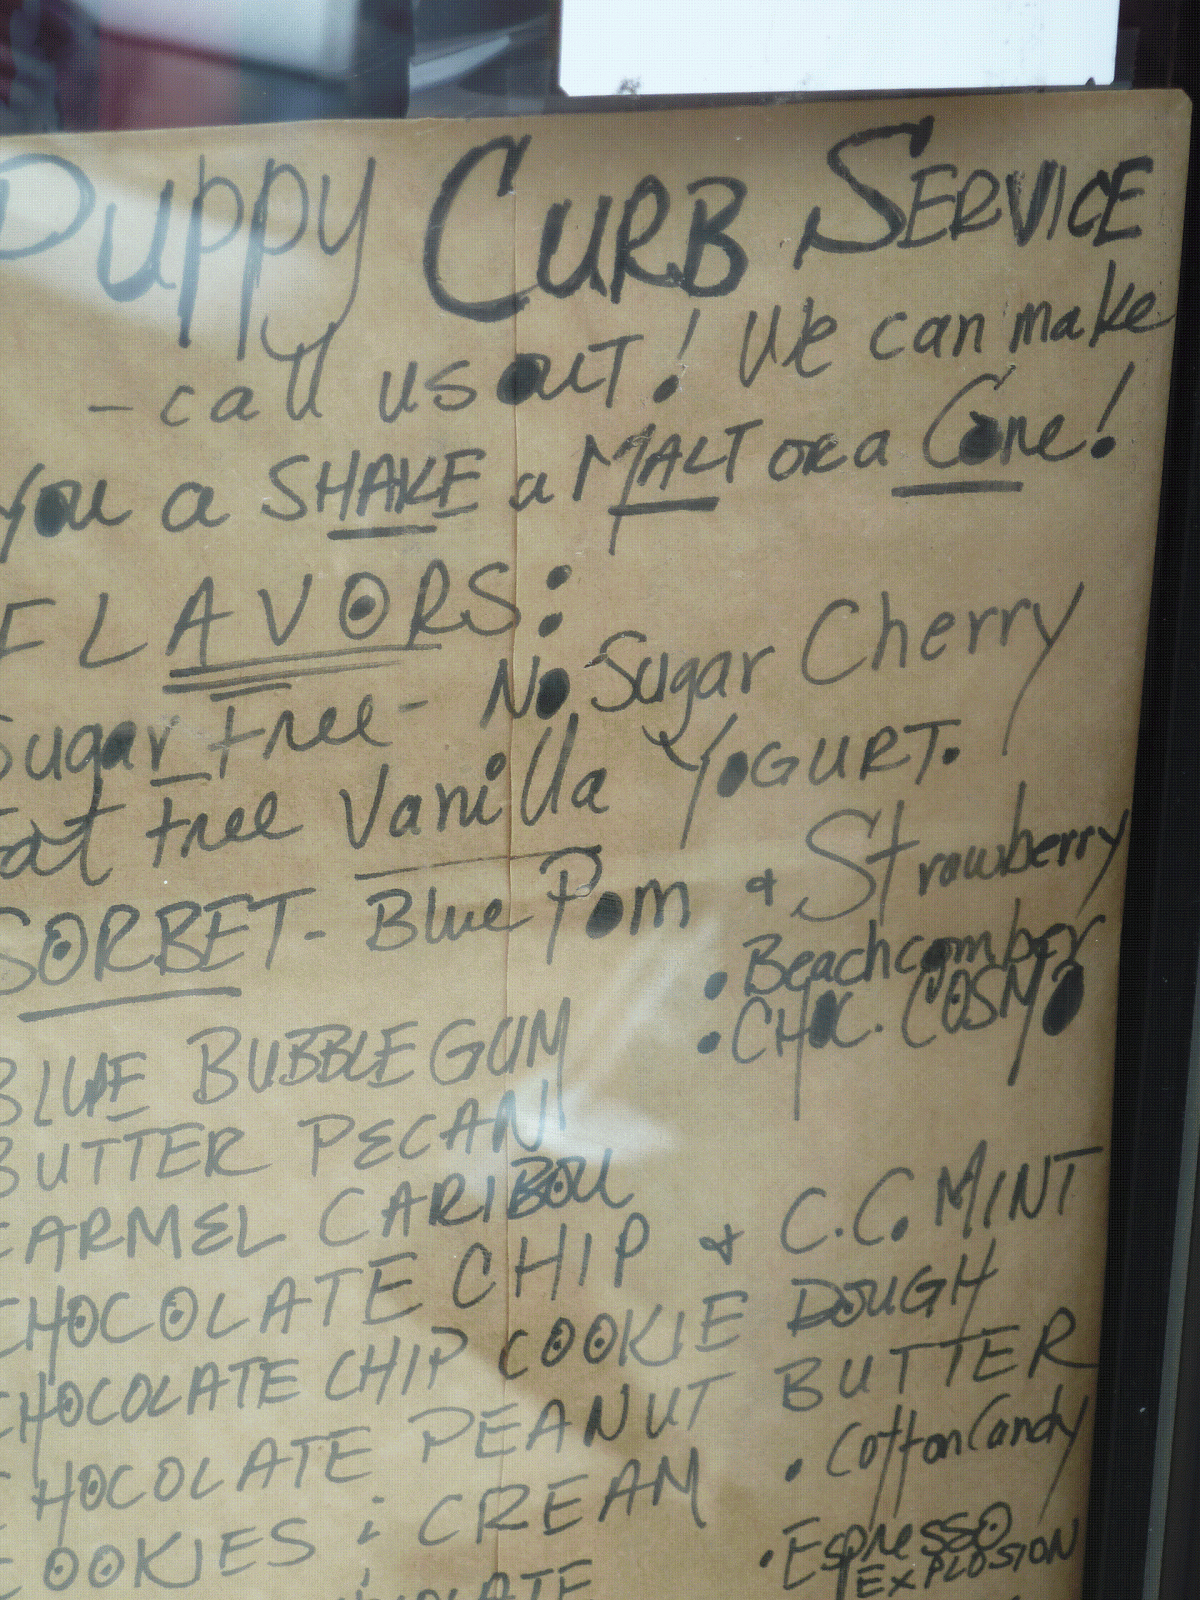 Puppy CURB SERVICE
- call us out! We can make
you a SHAKE a MALT or a Cone!
FLAVORS:
Sugar Free - No Sugar Cherry
Fat Free Vanilla YOGURT.
SORBET - Blue Pom & Strawberry
• Beachcomber
• CHOC. COSMO
BLUE BUBBLEGUM
BUTTER PECAN
CARMEL CARIBOU
CHOCOLATE CHIP & C.C. MINT
CHOCOLATE CHIP COOKIE DOUGH
CHOCOLATE PEANUT BUTTER
• Cotton Candy
COOKIES & CREAM
• ESPRESSO
EXPLOSION